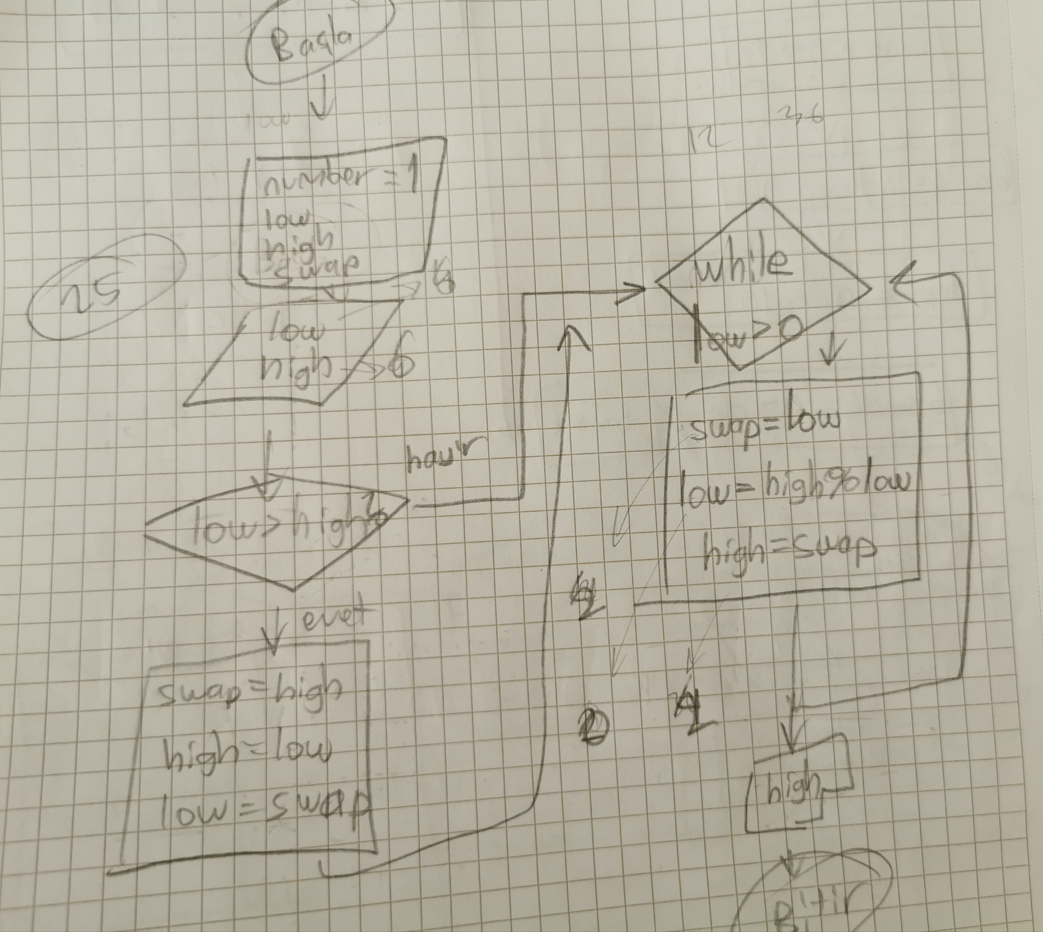 Başla
number = 1
low
high
swap
25
low
high
6
low > high?
hayır
evet
swap = high
high = low
low = swap
12
36
while
low > 0
swap = low
low = high % low
high = swap
high
Bitir